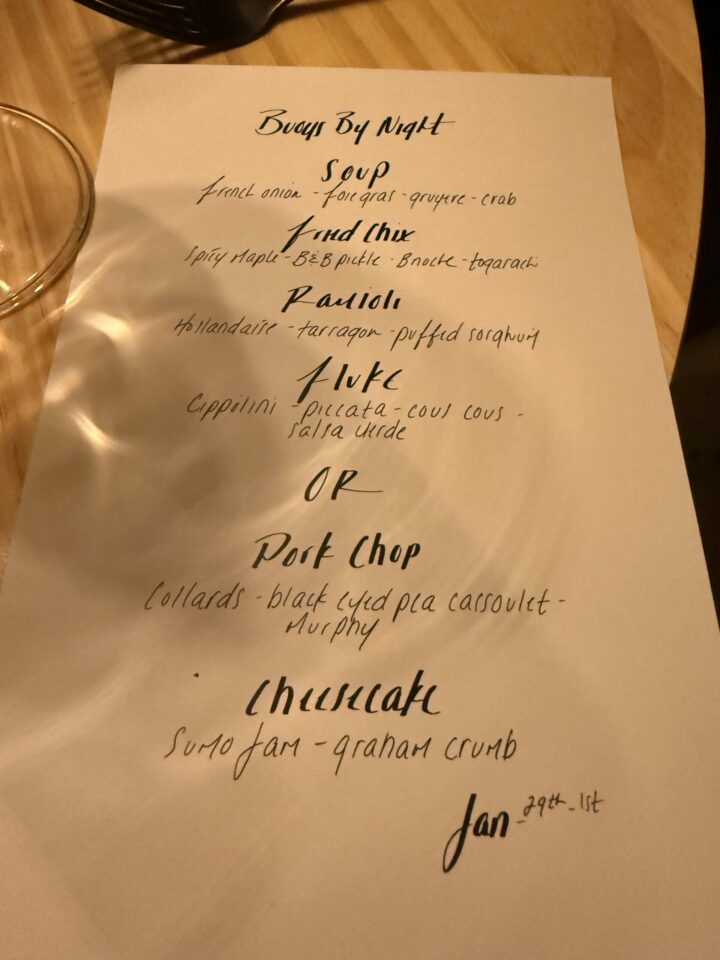 Buoys By Night
Soup
french onion - foie gras - gruyere - crab
fried Chix
Spicy Maple - B&B pickle - Brioche - togarachi
Ravioli
Hollandaise - tarragon - puffed sorghum
fluke
Cippolini - piccata - cous cous -
salsa verde
OR
Pork Chop
Collards - black eyed pea cassoulet -
Murphy
Cheesecake
Sumo Jam - graham crumb
Jan - 29th - 1st